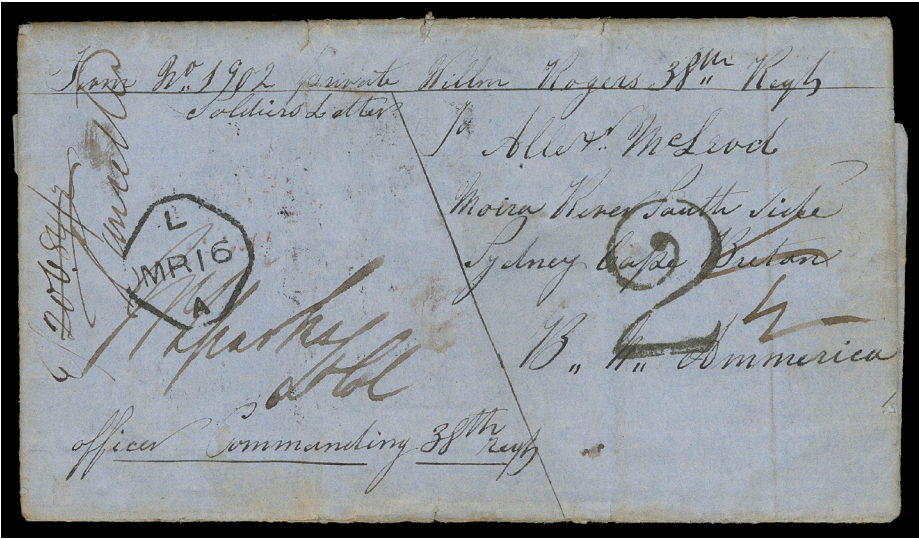 From No. 1902 Private Willm Rogers 38th Regt
Soldiers Letter
To
Allexr. McLeod
Moira River South Side
Sydney Cape Breton
B. N. Ammerica
L
MR16
A
2
Sparks
Lt Col
officer Commanding 38th Regt